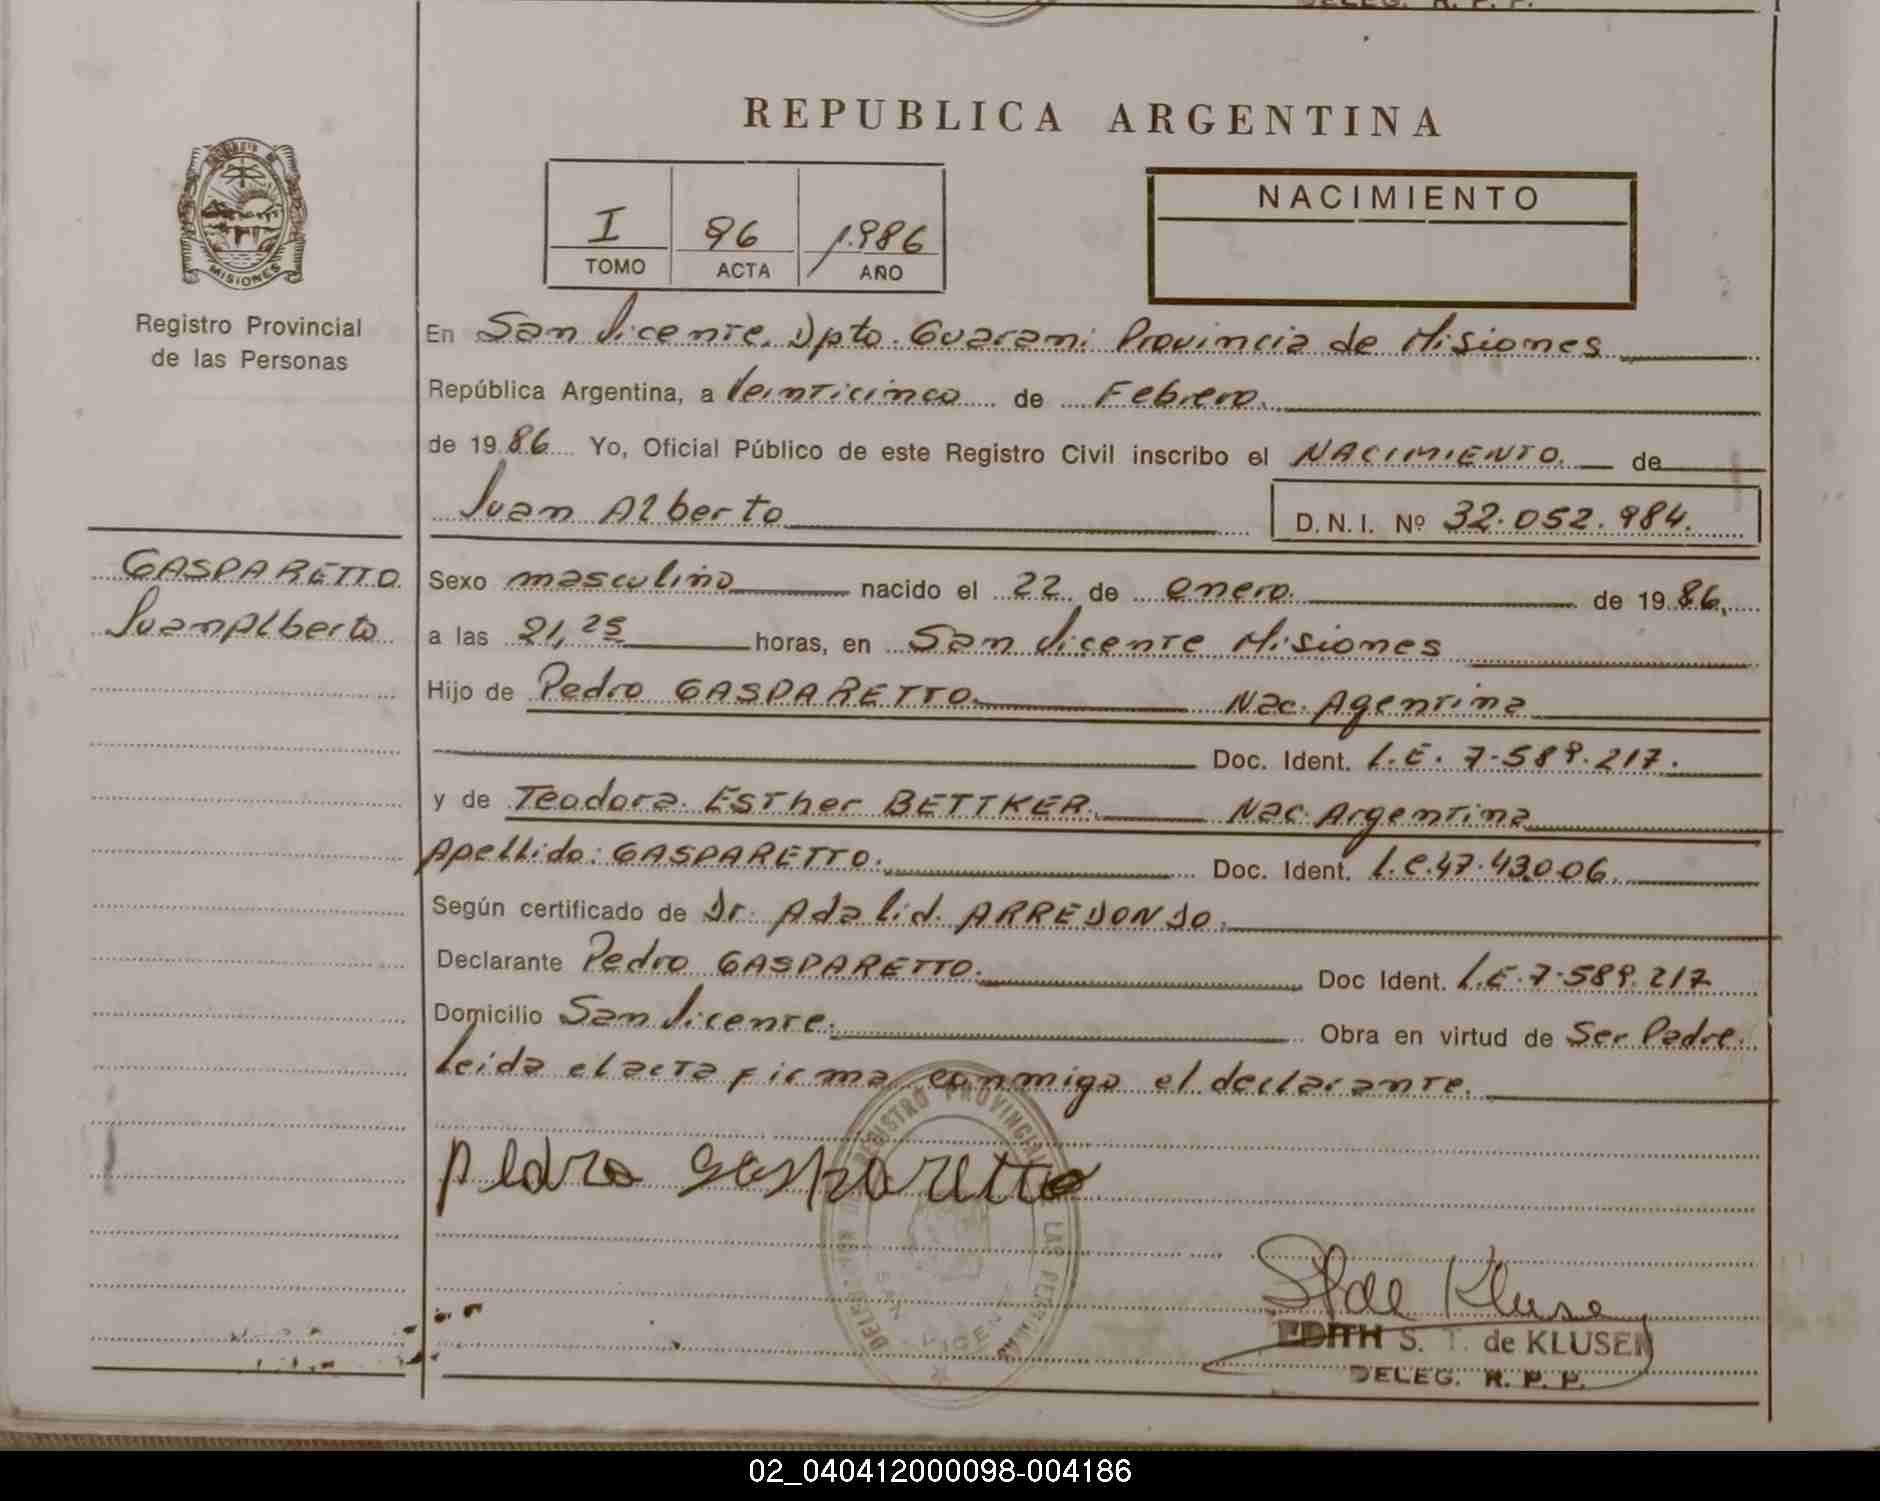 DELEG. R. P. P.
REPUBLICA ARGENTINA
MISIONES
Registro Provincial
de las Personas
I 96 1.986
TOMO ACTA AÑO
NACIMIENTO
En San Vicente, Dpto. Guarani Provincia de Misiones
República Argentina, a Veinticinco de Febrero.
de 19 86 Yo, Oficial Público de este Registro Civil inscribo el NACIMIENTO. de
Juan Alberto
D. N. I. Nº 32.052.984.
GASPARETTO
Juan Alberto
Sexo masculino nacido el 22 de enero. de 19 86,
a las 21,25 horas, en San Vicente Misiones
Hijo de Pedro GASPARETTO Nac. Agentina
Doc. Ident. L.E. 7.589.217.
y de Teodora Esther BETTKER. Nac. Argentina
Apellido: GASPARETTO. Doc. Ident. L.C.47.43.006.
Según certificado de Dr. Adalid. ARREDONDO.
Declarante Pedro GASPARETTO. Doc Ident. L.E.7.589.217
Domicilio San Vicente. Obra en virtud de Ser Padre.
Leida el acta firma conmigo el declarante.
Pedro Gasparetto
REGISTRO PROVINCIAL DE LAS PERSONAS
SAN VICENTE
S T de Klusen
EDITH S. T. de KLUSEN
DELEG. R. P. P.
02_040412000098-004186